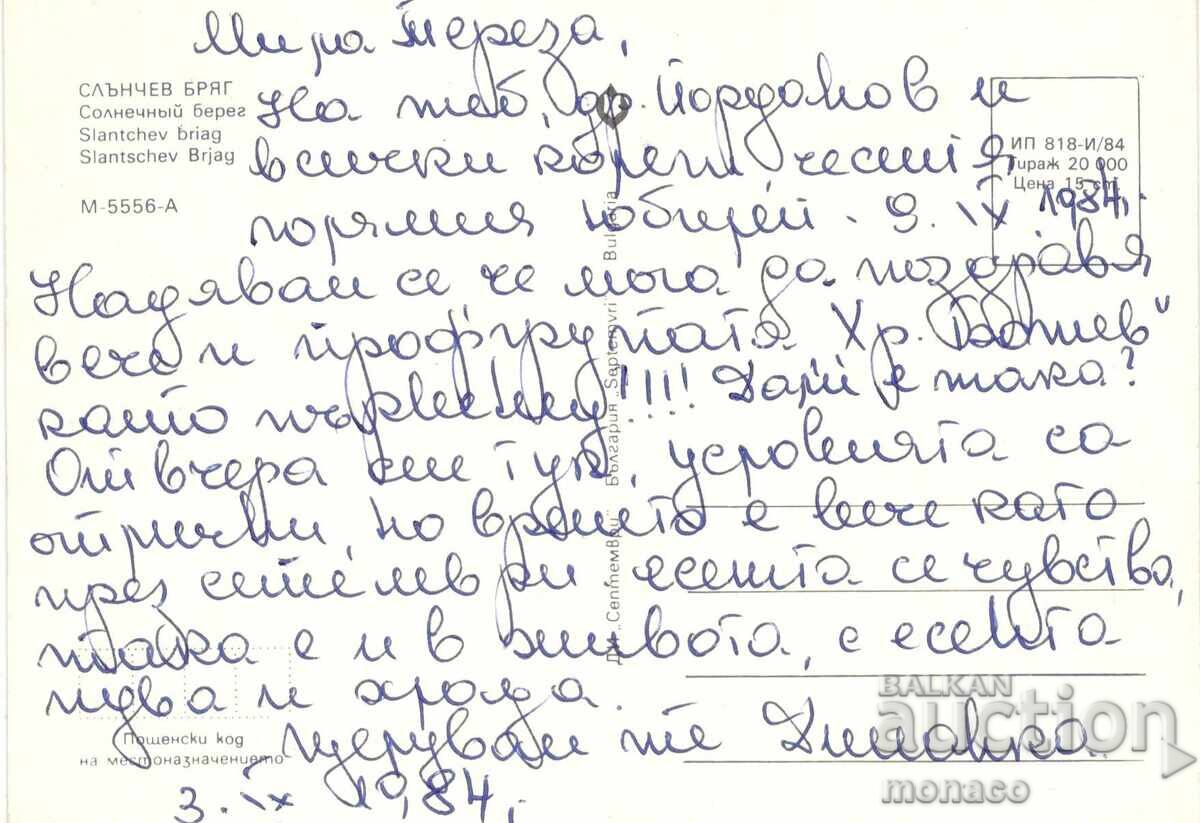 Мила Тереза,
СЛЪНЧЕВ БРЯГ
Солнечный берег
Slantchev briag
Slantschev Brjag
М-5556-А
ИП 818-И/84
Тираж 20 000
Цена 15 ст.
На теб, др. Йорданов и
всички колеги честит
големия юбилей - 9. IX 1984г.
Надявам се че мога да поздравя
вече и профгрупата Хр. Ботев"
като първенец!!!! Дали е така?
От вчера сме тук, условията са
отлични, но времето е вече като
през септември есента се чувства,
така е и в живота, с есента
идва и хлада.
Целувам те Диманка
3. IX 1984г.
ДИ „Септември" България „Septemvri" Bulgaria
Пощенски код
на местоназначението
BALKAN
auction
monaco